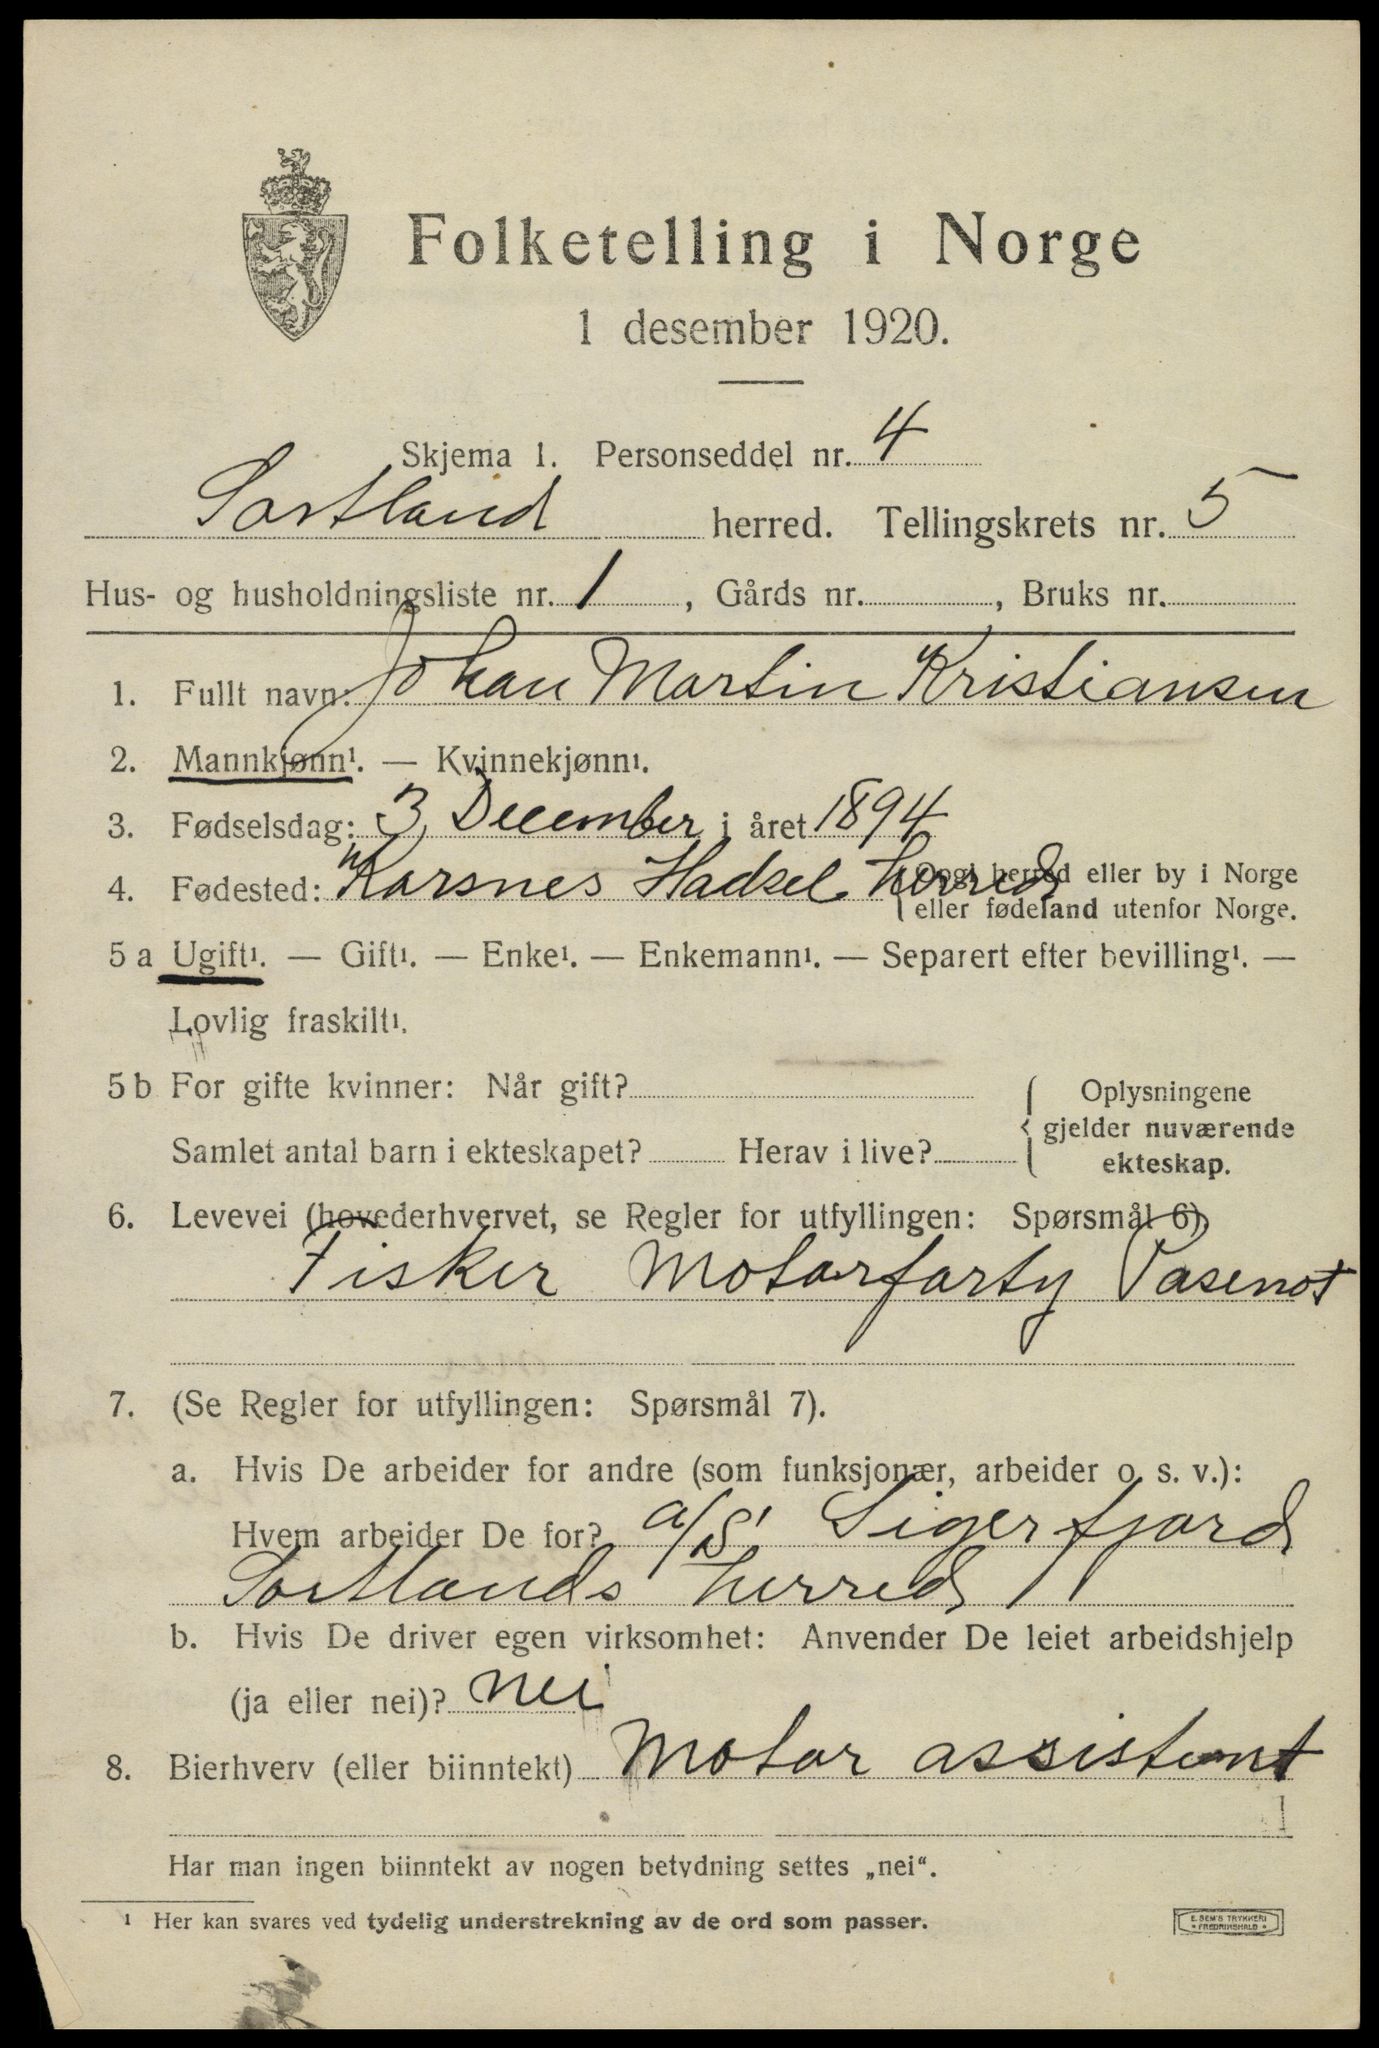 Folketelling i Norge
1 desember 1920.
Skjema 1. Personseddel nr. 4
Sortland herred. Tellingskrets nr. 5
Hus- og husholdningsliste nr. 1, Gårds nr. , Bruks nr.
1. Fullt navn: Johan Martin Kristiansen
2. Mannkjønn¹. — Kvinnekjønn¹.
3. Fødselsdag: 3 December i året 1894
4. Fødested: Karsnes Hadsel herred { Opgi herred eller by i Norge
eller fødeland utenfor Norge.
5 a Ugift¹. — Gift¹. — Enke¹. — Enkemann¹. — Separert efter bevilling¹. —
Lovlig fraskilt¹.
5 b For gifte kvinner: Når gift? { Oplysningene
gjelder nuværende
Samlet antal barn i ekteskapet? Herav i live?
ekteskap.
6. Levevei (hovederhvervet, se Regler for utfyllingen: Spørsmål 6)
Fisker Motorfarty Pasenot
7. (Se Regler for utfyllingen: Spørsmål 7).
a. Hvis De arbeider for andre (som funksjonær, arbeider o. s. v.):
Hvem arbeider De for? a/S Sigerfjord
Sortlands herred
b. Hvis De driver egen virksomhet: Anvender De leiet arbeidshjelp
(ja eller nei)? nei
8. Bierhverv (eller biinntekt) Motor assistent
Har man ingen biinntekt av nogen betydning settes „nei“.
¹ Her kan svares ved tydelig understrekning av de ord som passer.
E. SEM'S TRYKKERI
FREDRIKSHALD